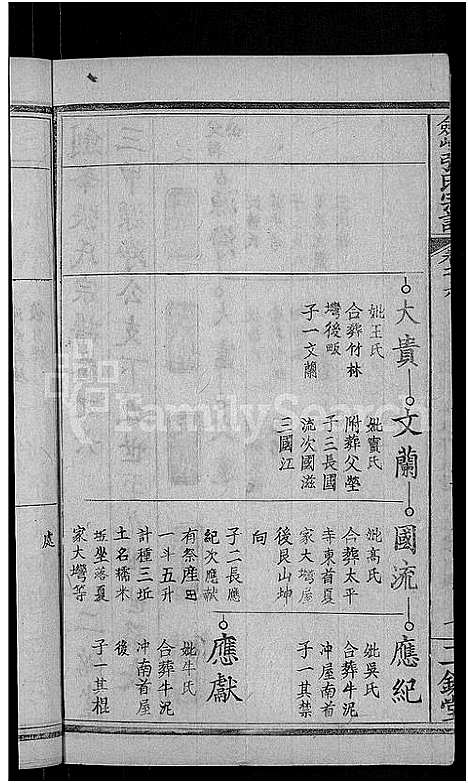 大貴
妣王氏
合葬竹林
塆後畈
子一文蘭
文蘭
妣竇氏
附葬父塋
子三長國
流次國滋
三國江
國流
妣高氏
合葬太平
寺東首夏
家大塆屋
後艮山坤
向
子二長應
紀次應獻
有祭產田
一斗五升
計種三坵
土名糯米
坵坐落夏
家大塆等
處
應紀
妣吳氏
合葬牛泥
冲屋南首
子一其禁
應獻
妣牛氏
合葬牛泥
冲南首屋
後
子一其棍
FamilySearch